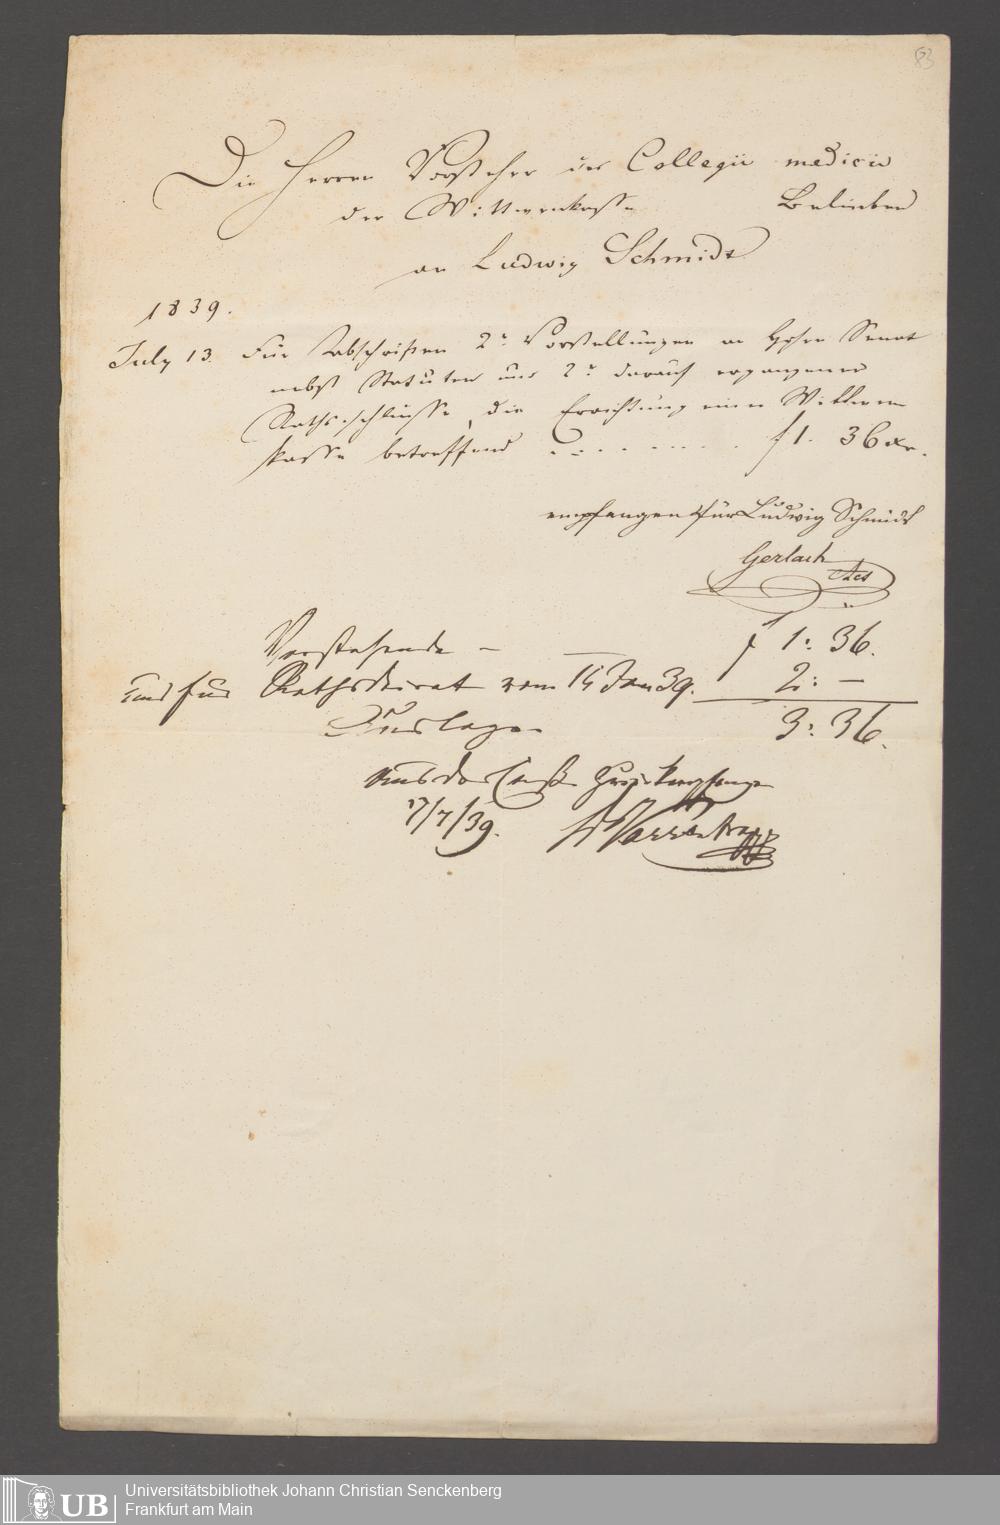 83
Die Herren Vorsteher des Collegii medicii
der Wittwenkasse Belieben
an Ludwig Schmidt
1839.
July 13. Für Abschriften 2r Vorstellungen an Hohen Senat
nebst Statuten und 2r darauf ergangener
Rathsschlüsse, die Errichtung einer Wittwen
kasse betreffend . . . . . . . f 1. 36 xr.
empfangen für Ludwig Schmidt
Gerlach
Vorstehende — — f 1: 36.
und für Rathsdecret vom 15 Jan 39. 2: —
Auslagen 3: 36.
aus der Casse
17/7/39. Varrentrapp
UB Universitätsbibliothek Johann Christian Senckenberg
Frankfurt am Main